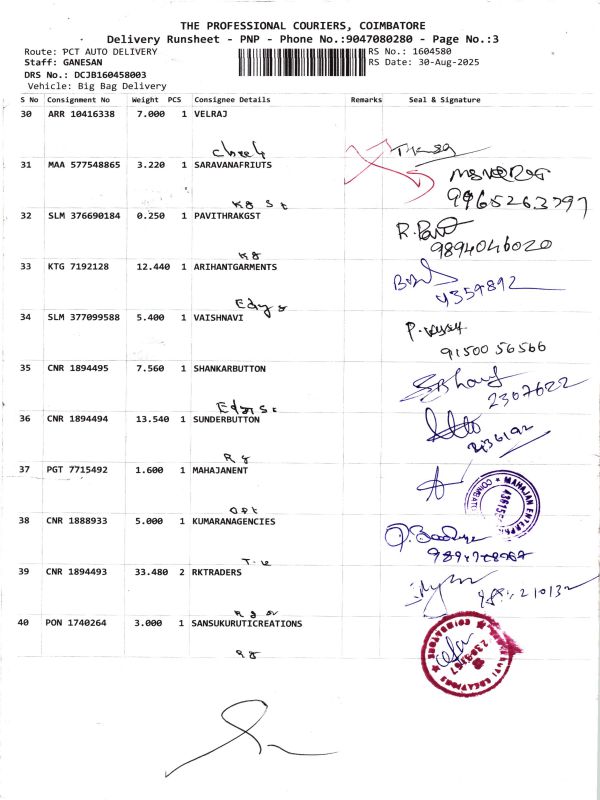 THE PROFESSIONAL COURIERS, COIMBATORE
Delivery Runsheet - PNP - Phone No.:9047080280 - Page No.:3
Route: PCT AUTO DELIVERY RS No.: 1604580
Staff: GANESAN RS Date: 30-Aug-2025
DRS No.: DCJB160458003
Vehicle: Big Bag Delivery
S No Consignment No Weight PCS Consignee Details Remarks Seal & Signature
30 ARR 10416338 7.000 1 VELRAJ
31 MAA 577548865 3.220 1 SARAVANAFRIUTS
9965263797
32 SLM 376690184 0.250 1 PAVITHRAKGST
9894046020
33 KTG 7192128 12.440 1 ARIHANTGARMENTS
4359892
34 SLM 377099588 5.400 1 VAISHNAVI
9150056566
35 CNR 1894495 7.560 1 SHANKARBUTTON
2307622
36 CNR 1894494 13.540 1 SUNDERBUTTON
37 PGT 7715492 1.600 1 MAHAJANENT
MAHAJAN ENTERPR
38 CNR 1888933 5.000 1 KUMARANAGENCIES
39 CNR 1894493 33.480 2 RKTRADERS
40 PON 1740264 3.000 1 SANSUKURUTICREATIONS
COIMBATORE